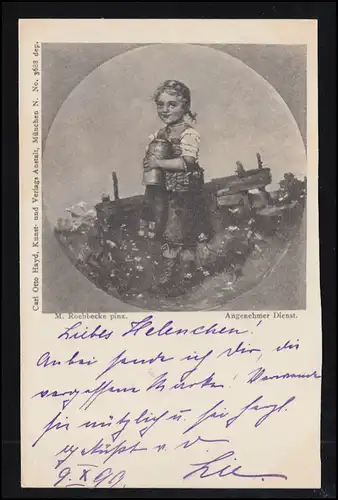 Carl Otto Hayd, Kunst- und Verlags Anstalt, München N. No. 3688 dep.
M. Roebbecke pinx. Angenehmer Dienst.
Liebes Helenchen!
Anbei sende ich Dir, die
vergessene Marke! Verwende
sie nützlich u. sei herzl.
geküßt v. d.
9. X 99.